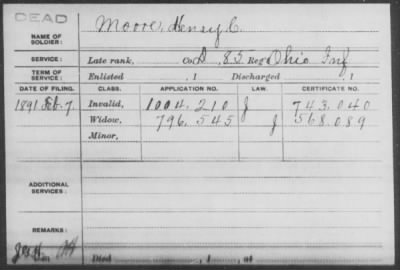 DEAD
NAME OF SOLDIER: Moore, Henry C.
SERVICE: Late rank, Co. D, 85 Reg't Ohio Inf
TERM OF SERVICE: Enlisted , 1 Discharged , 1
DATE OF FILING. CLASS. APPLICATION NO. LAW. CERTIFICATE NO.
1891 Feb. 7. Invalid, 1004.210 J 743.040
Widow, 796.545 J 568.089
Minor,
ADDITIONAL SERVICES:
REMARKS:
Died , 1 , at